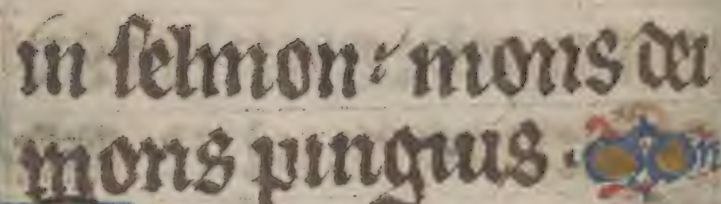 in selmon: mons dei
mons pinguis.